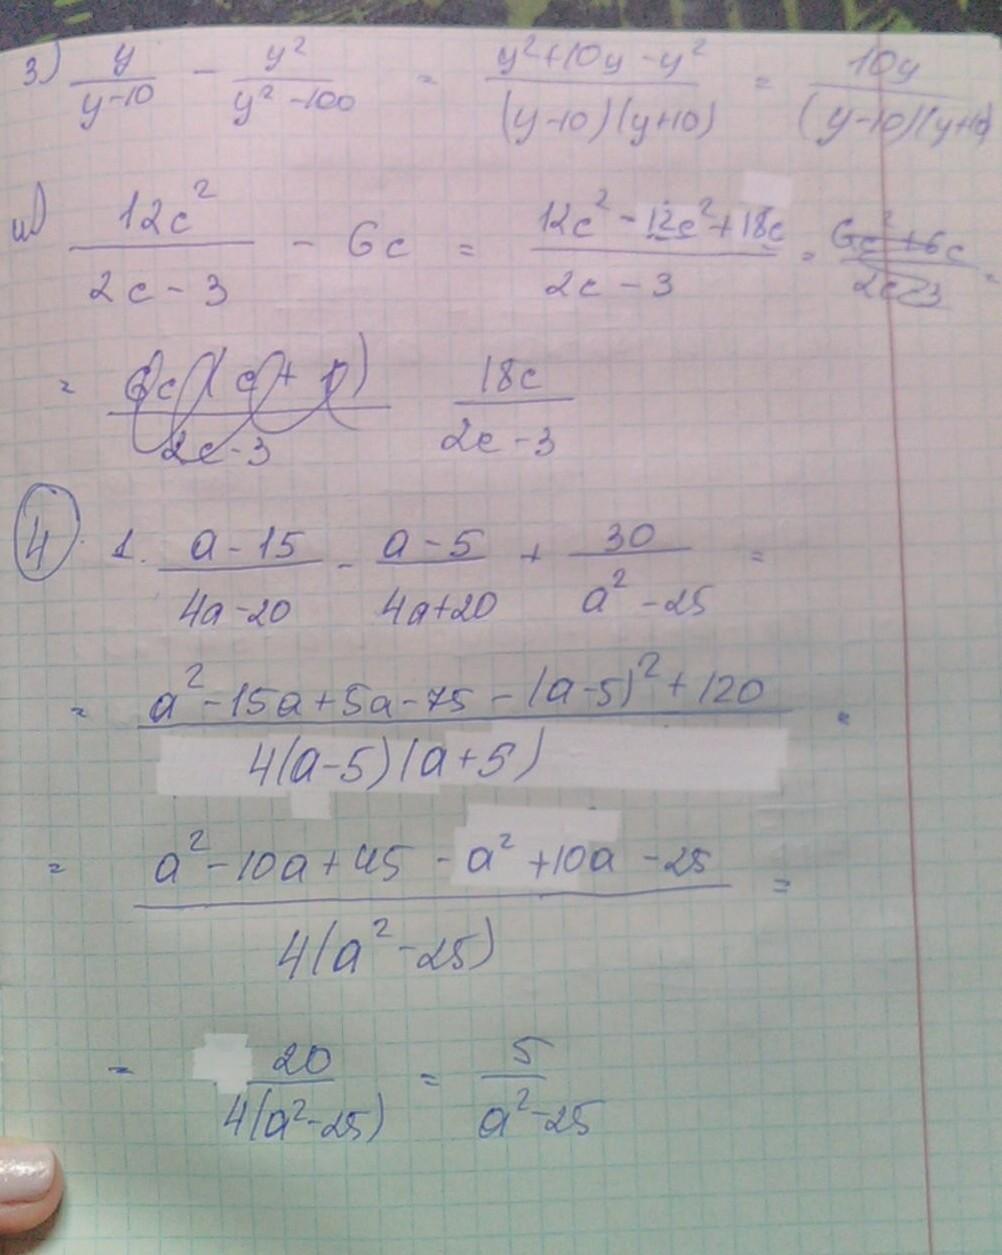 з) y/(y-10) - y²/(y²-100) = (y²+10y-y²)/((y-10)(y+10)) = 10y/((y-10)(y+10))
и) 12c²/(2c-3) - 6c = (12c²-12c²+18c)/(2c-3) = (6c²+6c)/(2c-3) =
= 6c(c+1)/(2c-3) 18c/(2c-3)
4. 1. (a-15)/(4a-20) - (a-5)/(4a+20) + 30/(a²-25) =
= (a²-15a+5a-75-(a-5)²+120)/(4(a-5)(a+5)) =
= (a²-10a+45-a²+10a-25)/(4(a²-25)) =
= 20/(4(a²-25)) = 5/(a²-25)